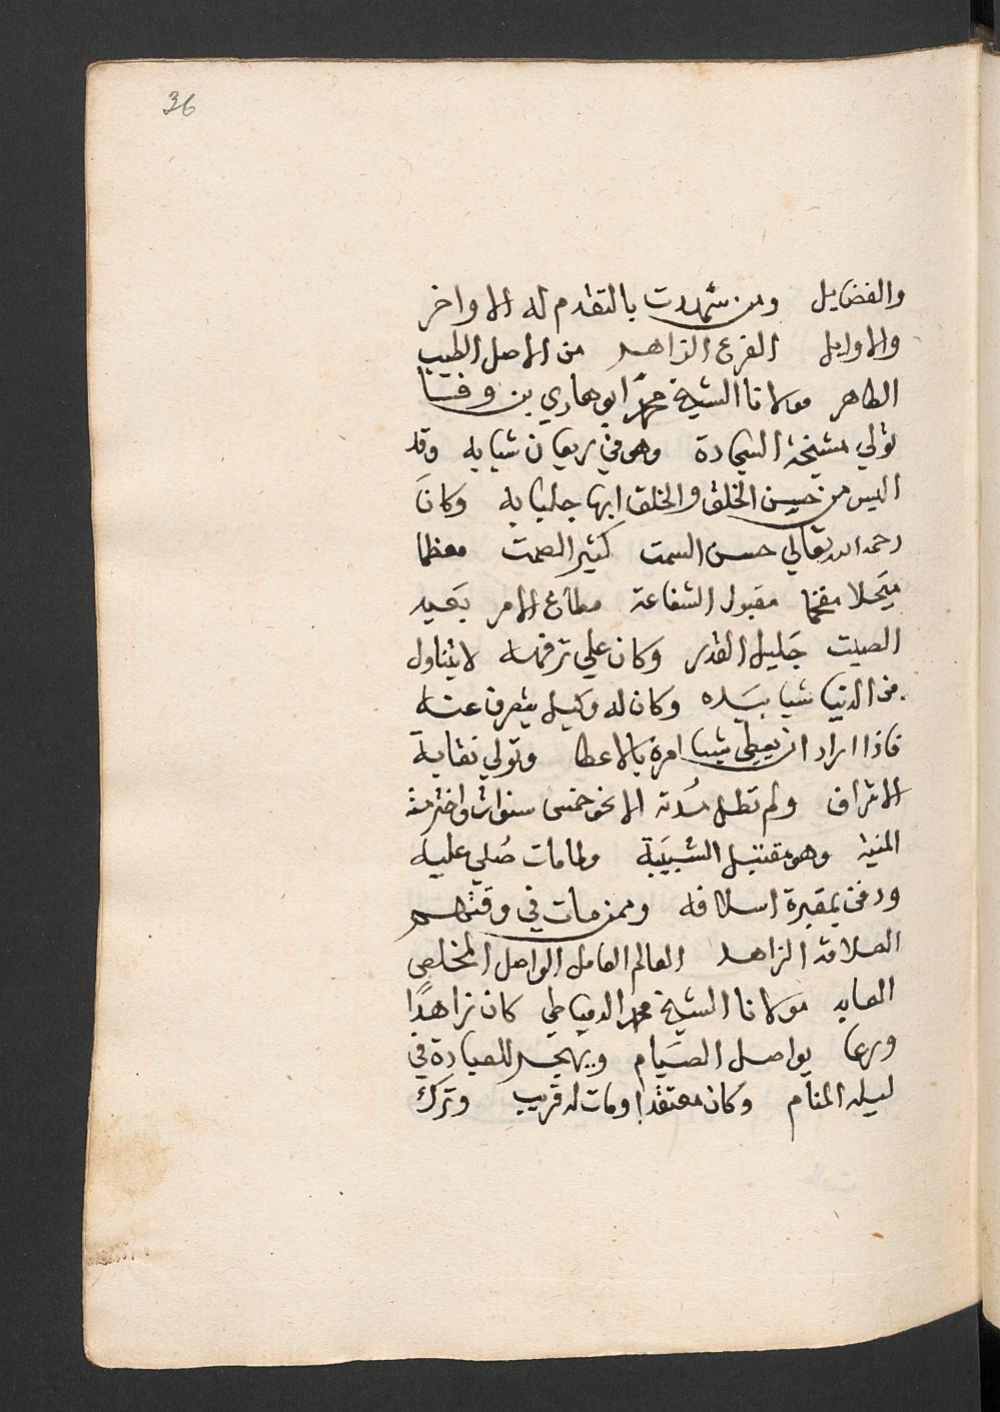 36
والفضايل ومن شهدت بالتقدم له الاواخر
والاوايل الفرع الزاهد من الاصل الطيب
الطاهر مولانا الشيخ محمد ابو هادي بن وفا
تولي مشيخة السجادة وهو في ريعان شبابه وقد
البس من حسن الخلق والخلق ابها جلبابه وكانَ
رحمه الله تعالي حسن السمت كثير الصمت معظما
مبجلا مفخما مقبول الشفاعة مطاع الامر بعيد
الصيت جَليل القدر وكان علي ترفهه لا يتناول
من الدنيا شيا بيَده وكان له وكيل يتصرف عنه
فاذا اراد ان يعطي شيا امره بالاعطا وتولي نقابة
الاشراف ولم تطل مُدته الا نحو خمس سنوات واخترمته
المنية وهو مقتبل الشبيَبة ولما مات صُلي عليه
ودفن بمقبرة اسلافه وممن مات في وقتهم
العلامة الزاهد العالم العامل الواصل المخلص
العابد مولانا الشيخ محمد الدمياطي كان زاهدًا
ورعا يواصل الصيَام ويهجر للعبادة في
ليله المنام وكان معتقدا ومات له قريب وترك